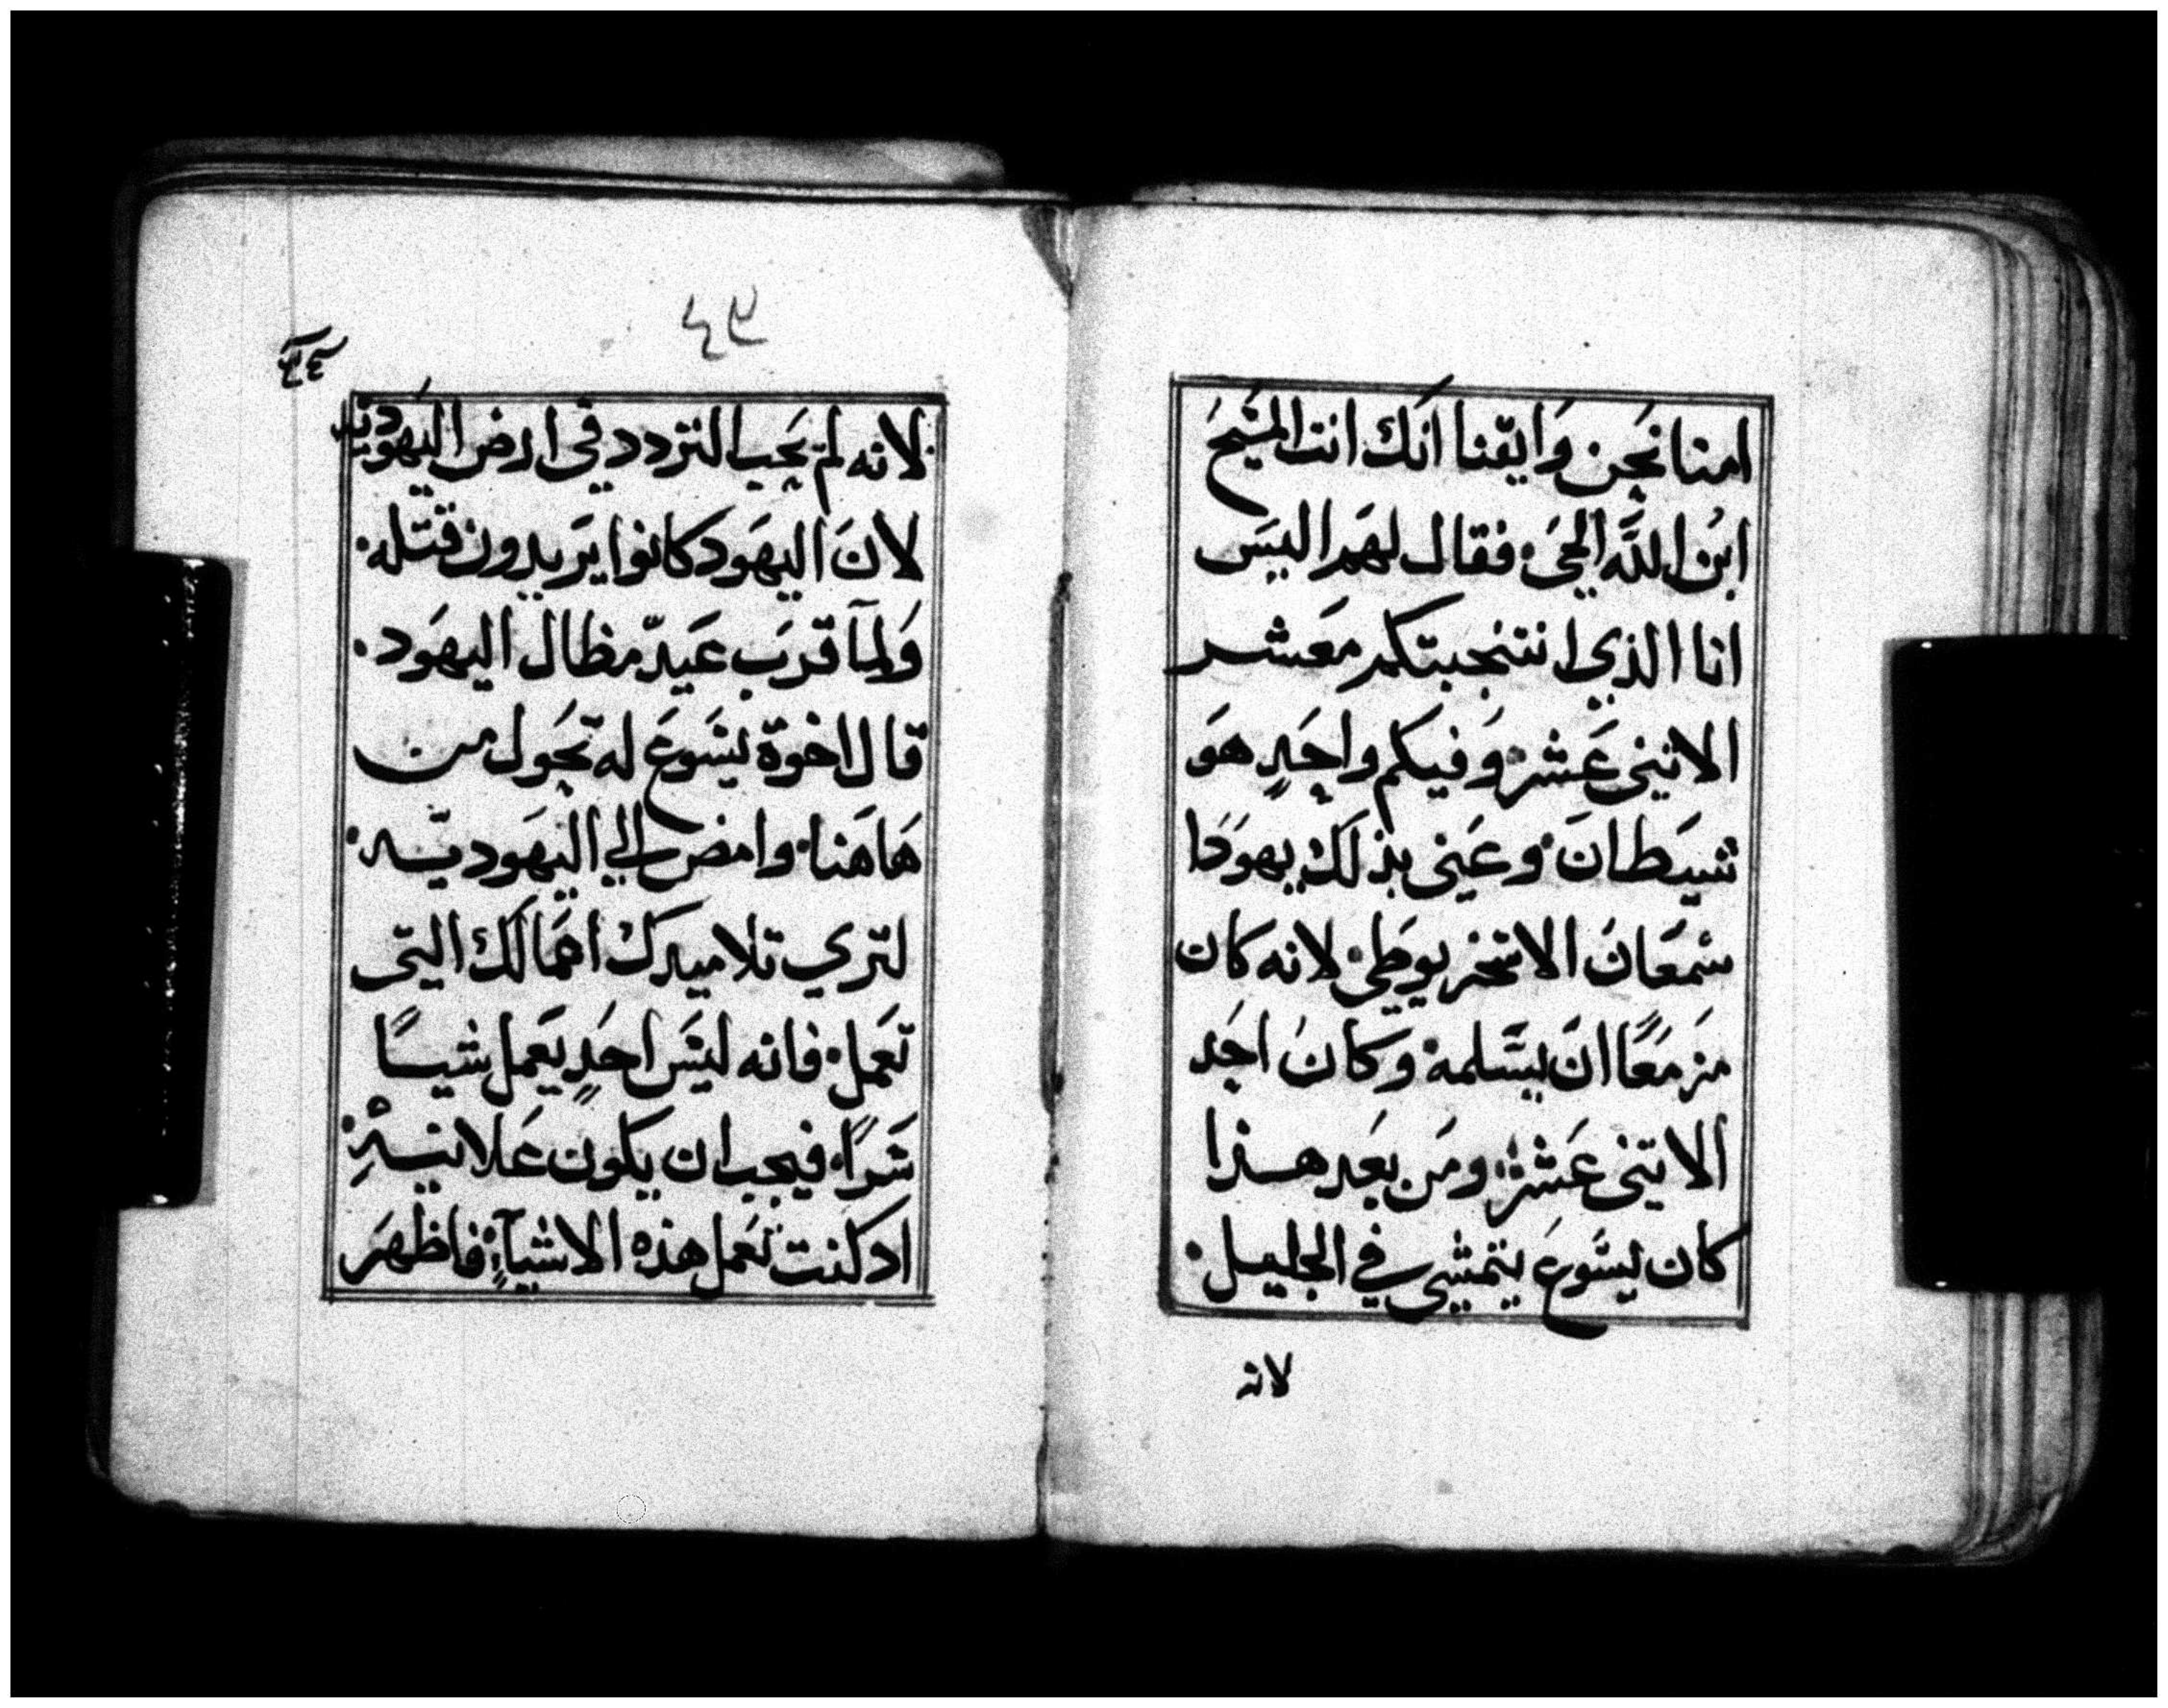 امنا نحن وايقنا انك انت المسيح
ابن الله الحي فقال لهم اليس
انا الذي انتجبتكم معشر
الاثني عشر وفيكم واحد هو
شيطان وعنى بذلك يهودا
سمعان الاسخريوطي لانه كان
مزمعا ان يسلمه وكان احد
الاتنى عشر ومن بعد هذا
كان يسوع يتمشي في الجليل
لانه
لانه لم يحب التردد في ارض اليهودية
لان اليهود كانوا يريدون قتله
ولما قرب عيد مظال اليهود
قال اخوة يسوع له تحول من
هاهنا وامض الي اليهودية
لتري تلاميدك اعمالك التي
تعمل فانه ليس احد يعمل شيا
سرا فيجب ان يكون علانية
اد كنت تعمل هذه الاشياء فاظهر